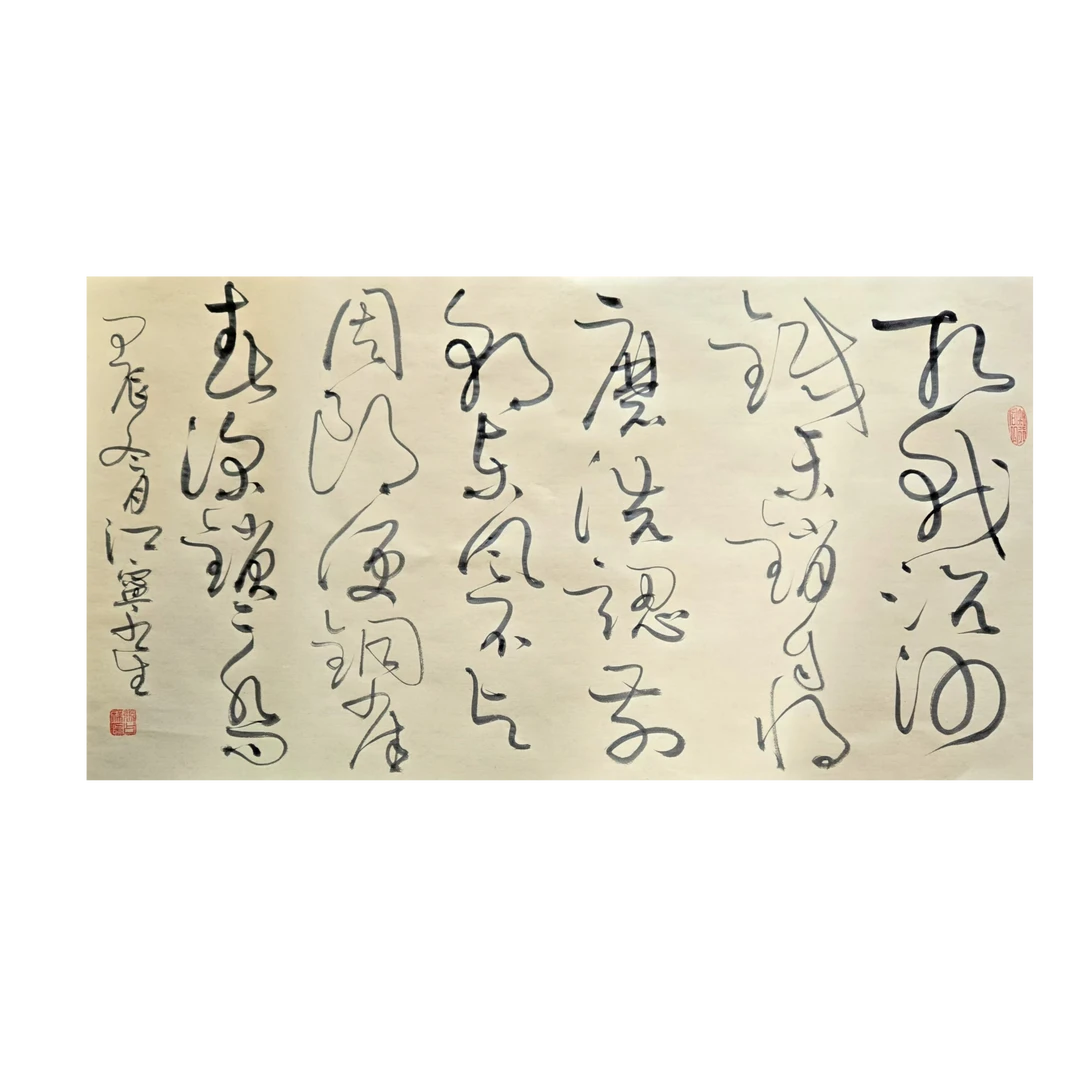 折戟沉沙
鐵未銷自將
磨洗認前
朝東風不与
周郎便銅雀
春深鎖二喬
壬辰冬月江寧生